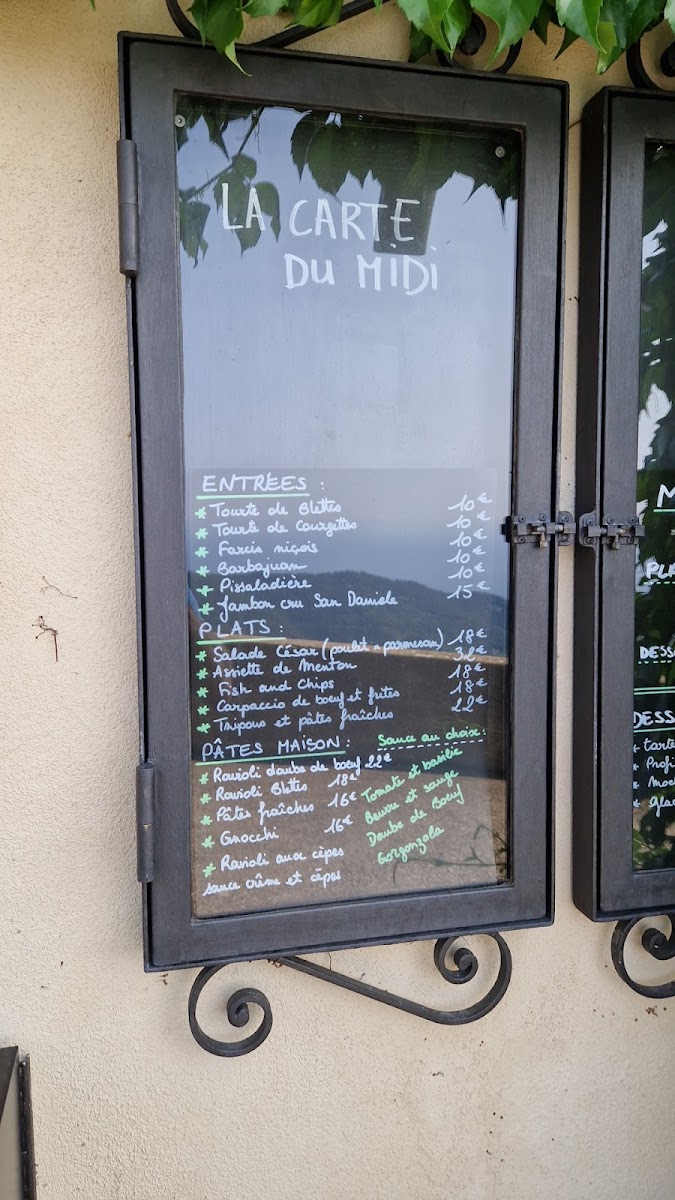 LA CARTE
DU MIDI
ENTRÉES :
* Tourte de Blettes 10€
* Tourte de Courgettes 10€
* Farcis niçois 10€
* Barbajuan 10€
* Pissaladière 10€
* Jambon cru San Daniele 15€
PLATS :
* Salade César (poulet parmesan) 18€
* Assiette de Menton 32€
* Fish and Chips 18€
* Carpaccio de boeuf et frites 18€
* Tripous et pâtes fraîches 22€
PÂTES MAISON :
* Ravioli daube de boeuf 22€
* Ravioli Blettes 18€
* Pâtes fraîches 16€
* Gnocchi 16€
* Ravioli aux cèpes
sauce crème et cèpes
Sauce au choix :
Tomate et basilic
Beurre et sauge
Daube de Boeuf
Gorgonzola
M
DESS
DESS
* tarte
* Profi